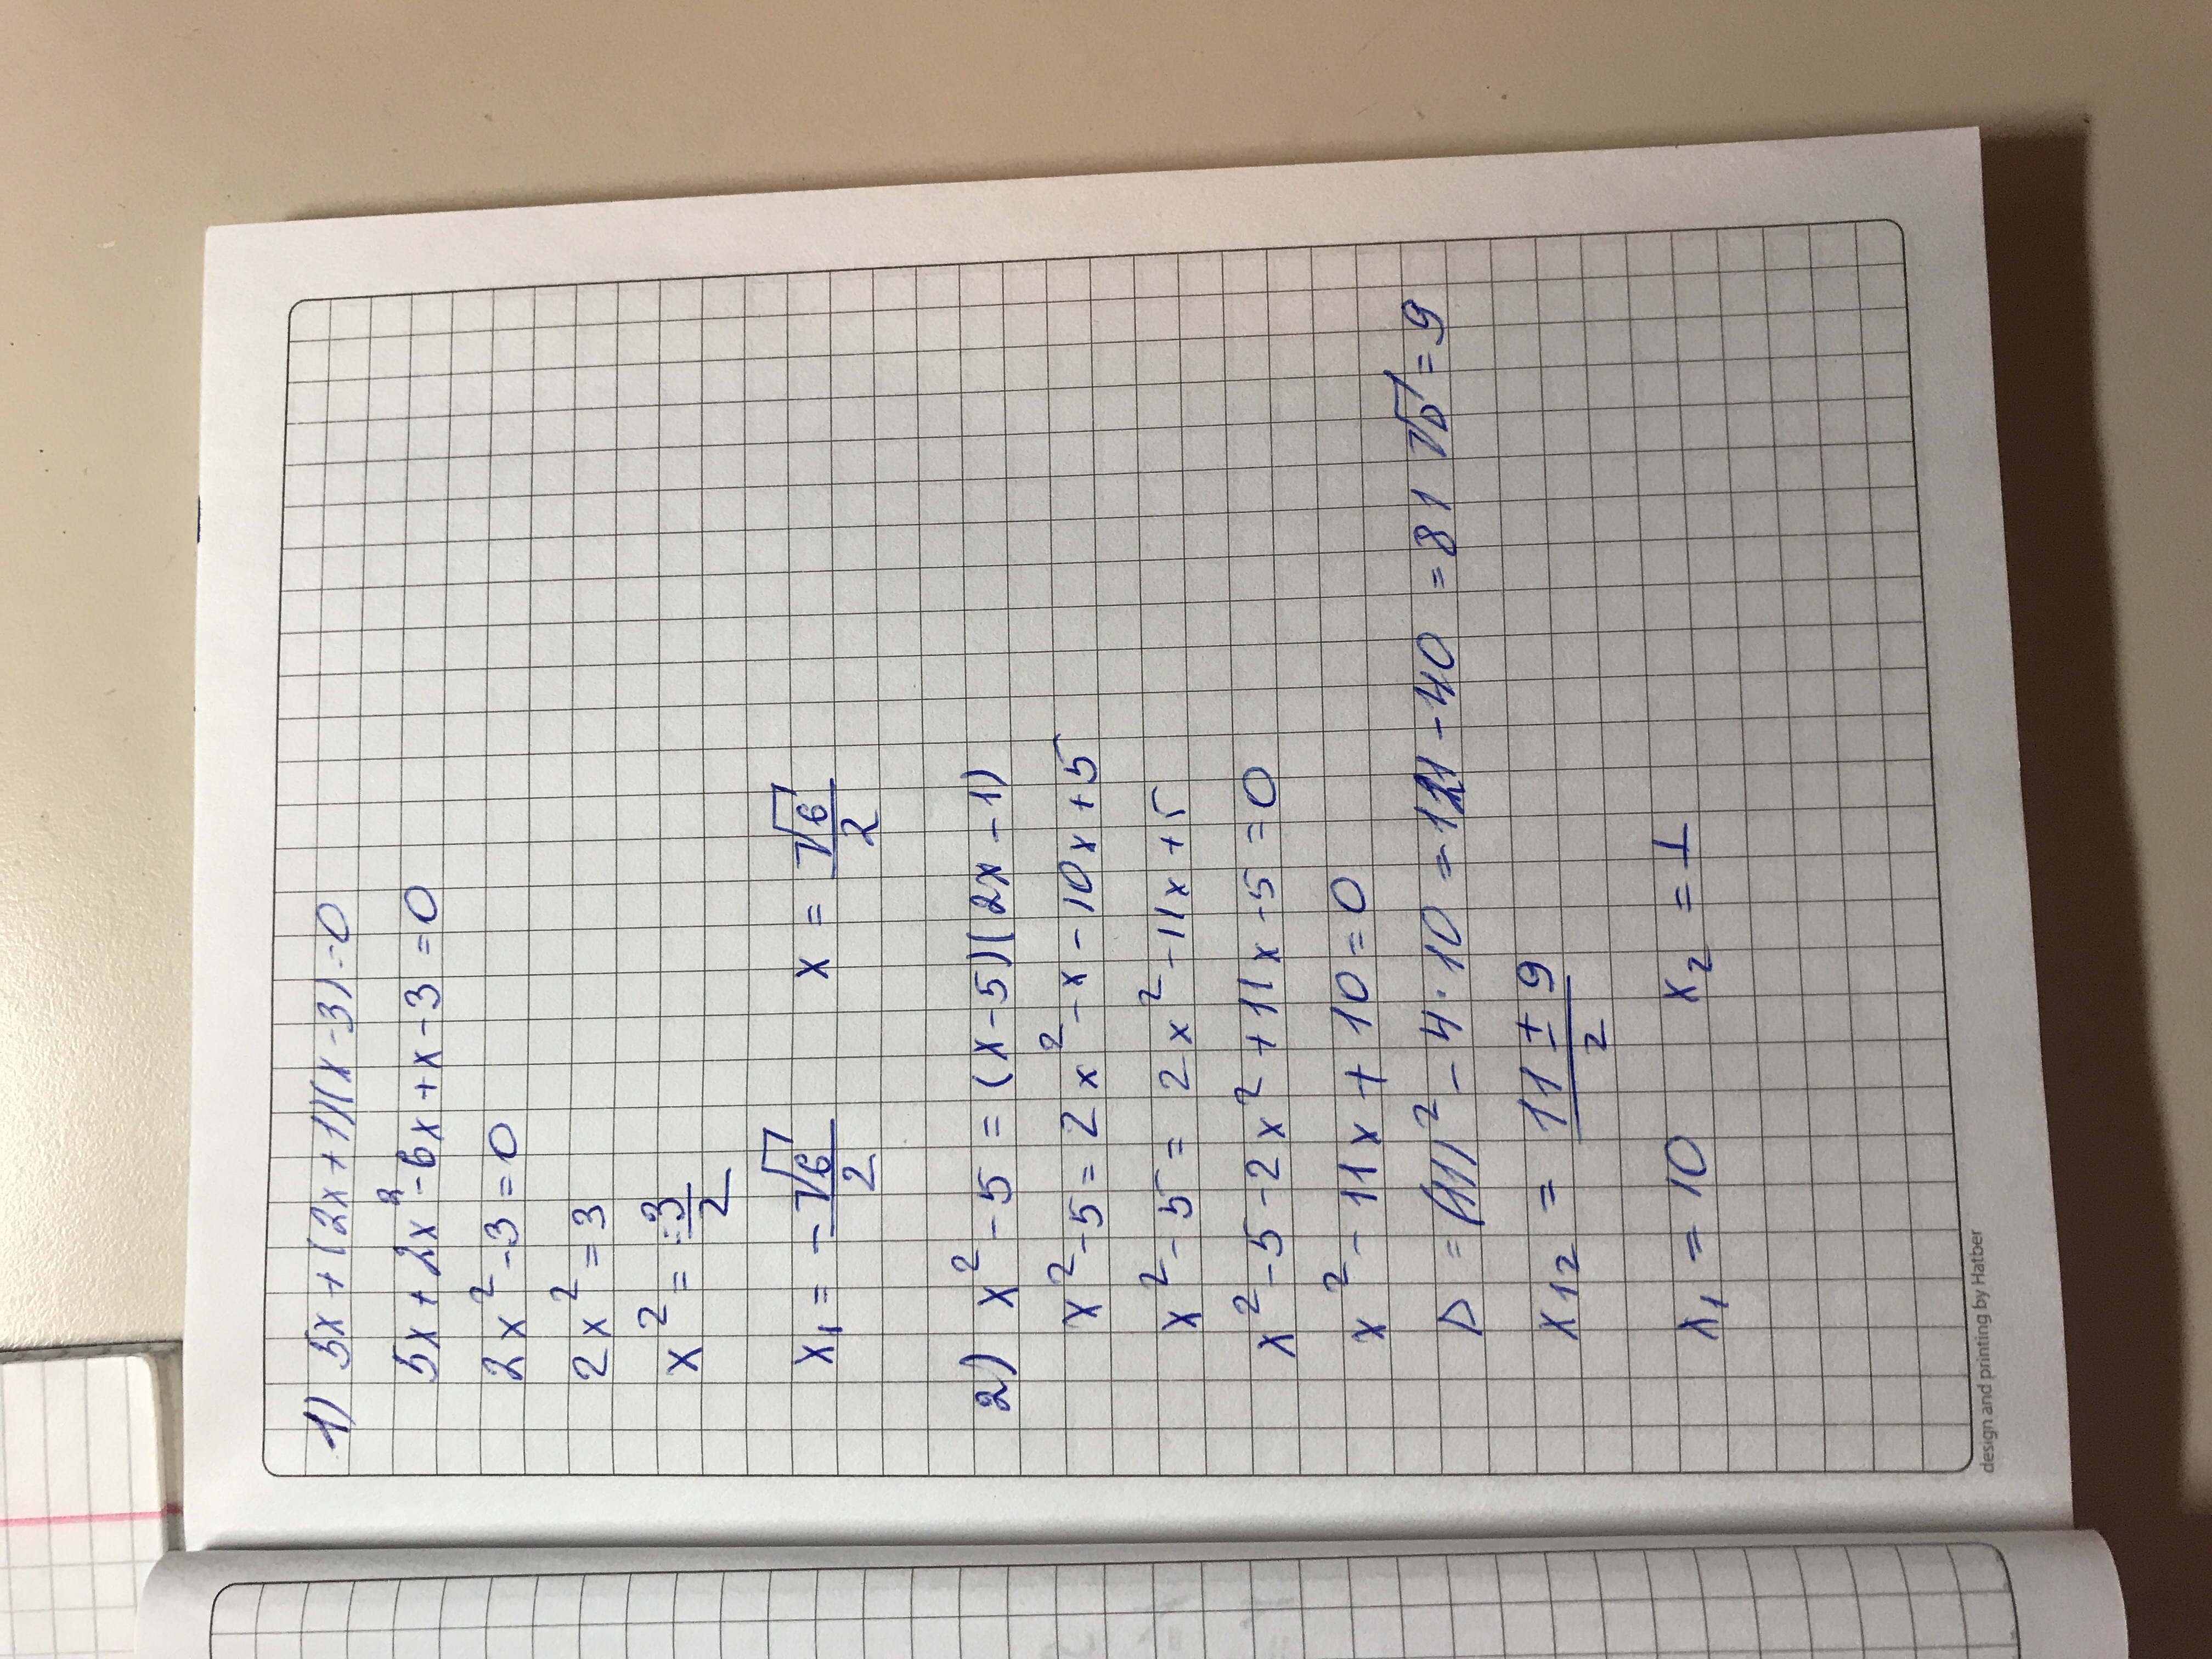 1) 5x + (2x + 1)(x - 3) = 0
5x + 2x² - 6x + x - 3 = 0
2x² - 3 = 0
2x² = 3
x² = 3/2
x₁ = -√6/2   x = √6/2
2) x² - 5 = (x - 5)(2x - 1)
x² - 5 = 2x² - x - 10x + 5
x² - 5 = 2x² - 11x + 5
x² - 5 - 2x² + 11x - 5 = 0
x² - 11x + 10 = 0
D = (11)² - 4 · 10 = 121 - 40 = 81 √D = 9
x₁₂ = (11 ± 9)/2
x₁ = 10   x₂ = 1
design and printing by Hatber